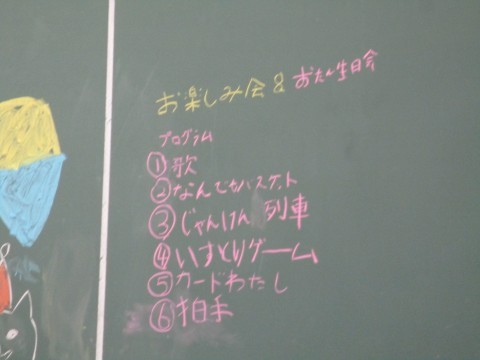 お楽しみ会&おたん生日会
プログラム
①歌
②なんでもバスケット
③じゃんけん列車
④いすとりゲーム
⑤カードわたし
⑥拍手